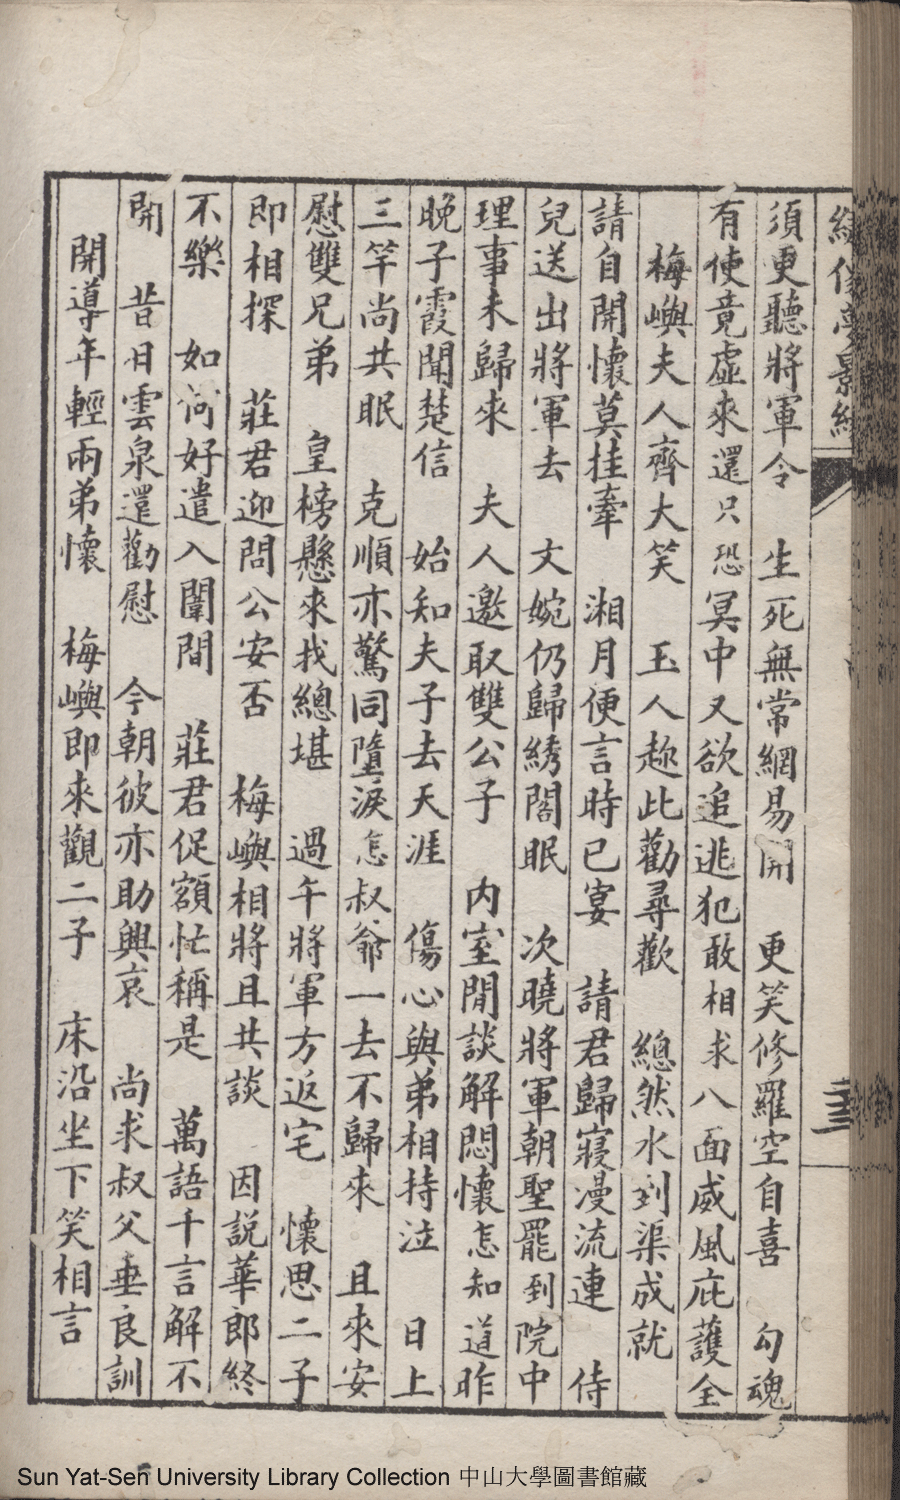 須更聽將軍令　生死無常網易開　更笑修羅空自喜　勾魂
有使竟虛來還只恐冥中又欲追逃犯敢相求八面威風庇護全
梅嶼夫人齊大笑　玉人趂此勸尋歡　總然水到渠成就
請自開懷莫挂牽　湘月便言時已宴　請君歸寢漫流連　侍
兒送出將軍去　文婉仍歸綉閣眠　次曉將軍朝聖罷到院中
理事未歸來　夫人邀取雙公子　內室閒談解悶懷怎知道昨
晚子霞聞楚信　始知夫子去天涯　傷心與弟相持泣　日上
三竿尚共眠　克順亦驚同墮淚怎叔爺一去不歸來　且來安
慰雙兄弟　皇榜懸來找總堪　過午將軍方返宅　懷思二子
即相探　莊君迎問公安否　梅嶼相將且共談　因說華郎終
不樂　如何好遣入闈間　莊君促額忙稱是　萬語千言解不
開　昔日雲泉還勸慰　今朝彼亦助興哀　尚求叔父垂良訓
開導年輕兩弟懷　梅嶼即來觀二子　床沿坐下笑相言
Sun Yat-Sen University Library Collection 中山大學圖書館藏